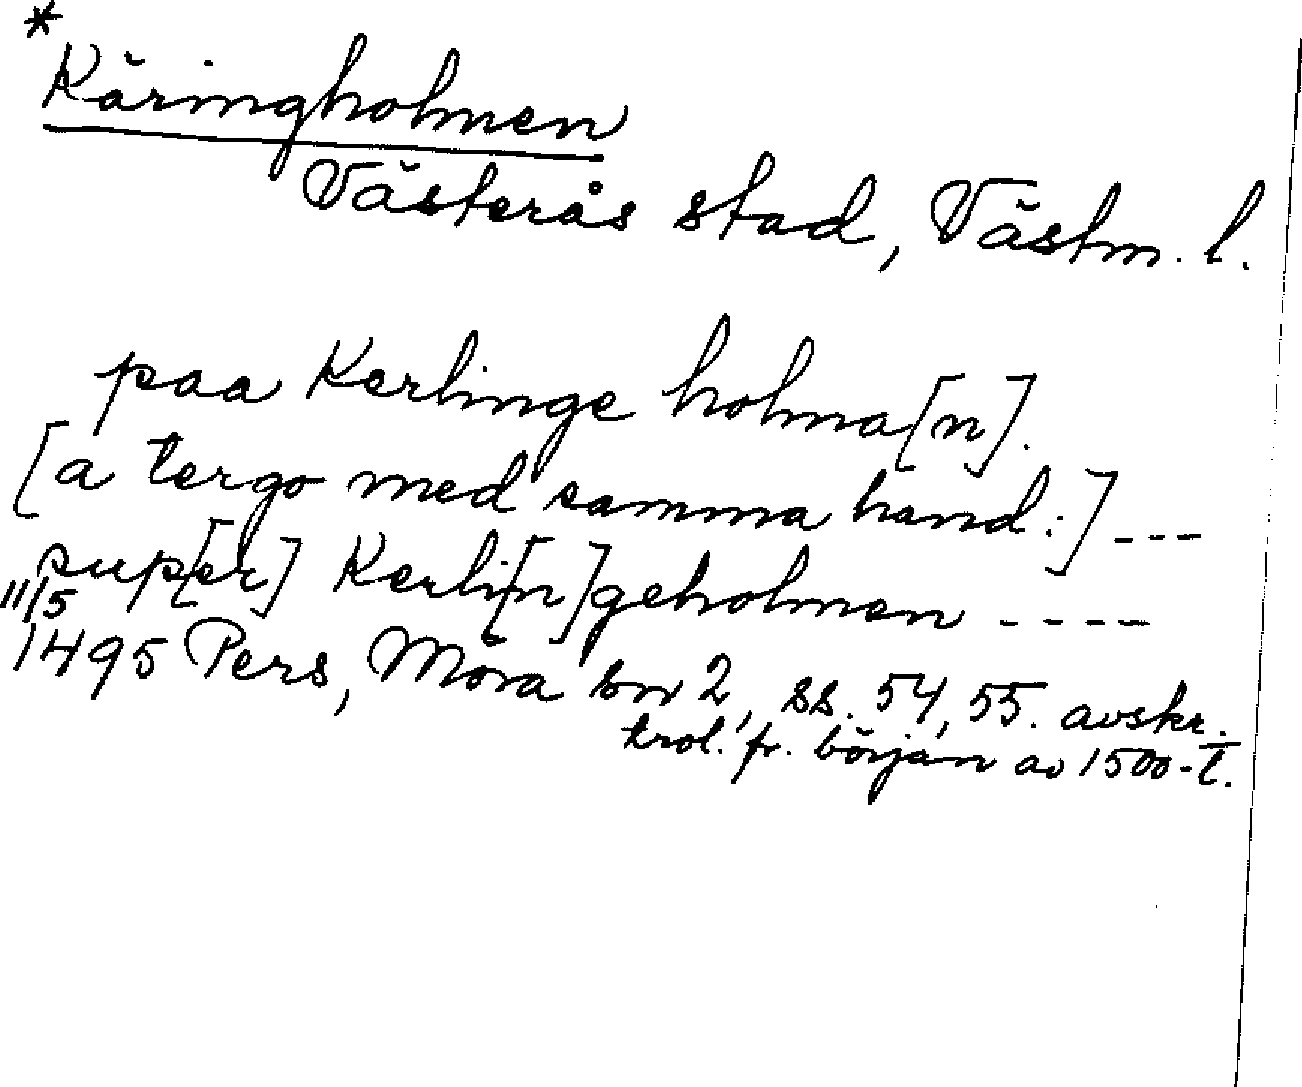 *
Käringholmen
Västerås stad, Västm. l.
paa Kerlinge holma[n].
[a tergo med samma hand:] ---
sup[er] Kerli[n]geholmen ----
11/5
1495 Pers, Möra bn 2, ss. 54, 55. avskr.
trol. fr. början av 1500-t.